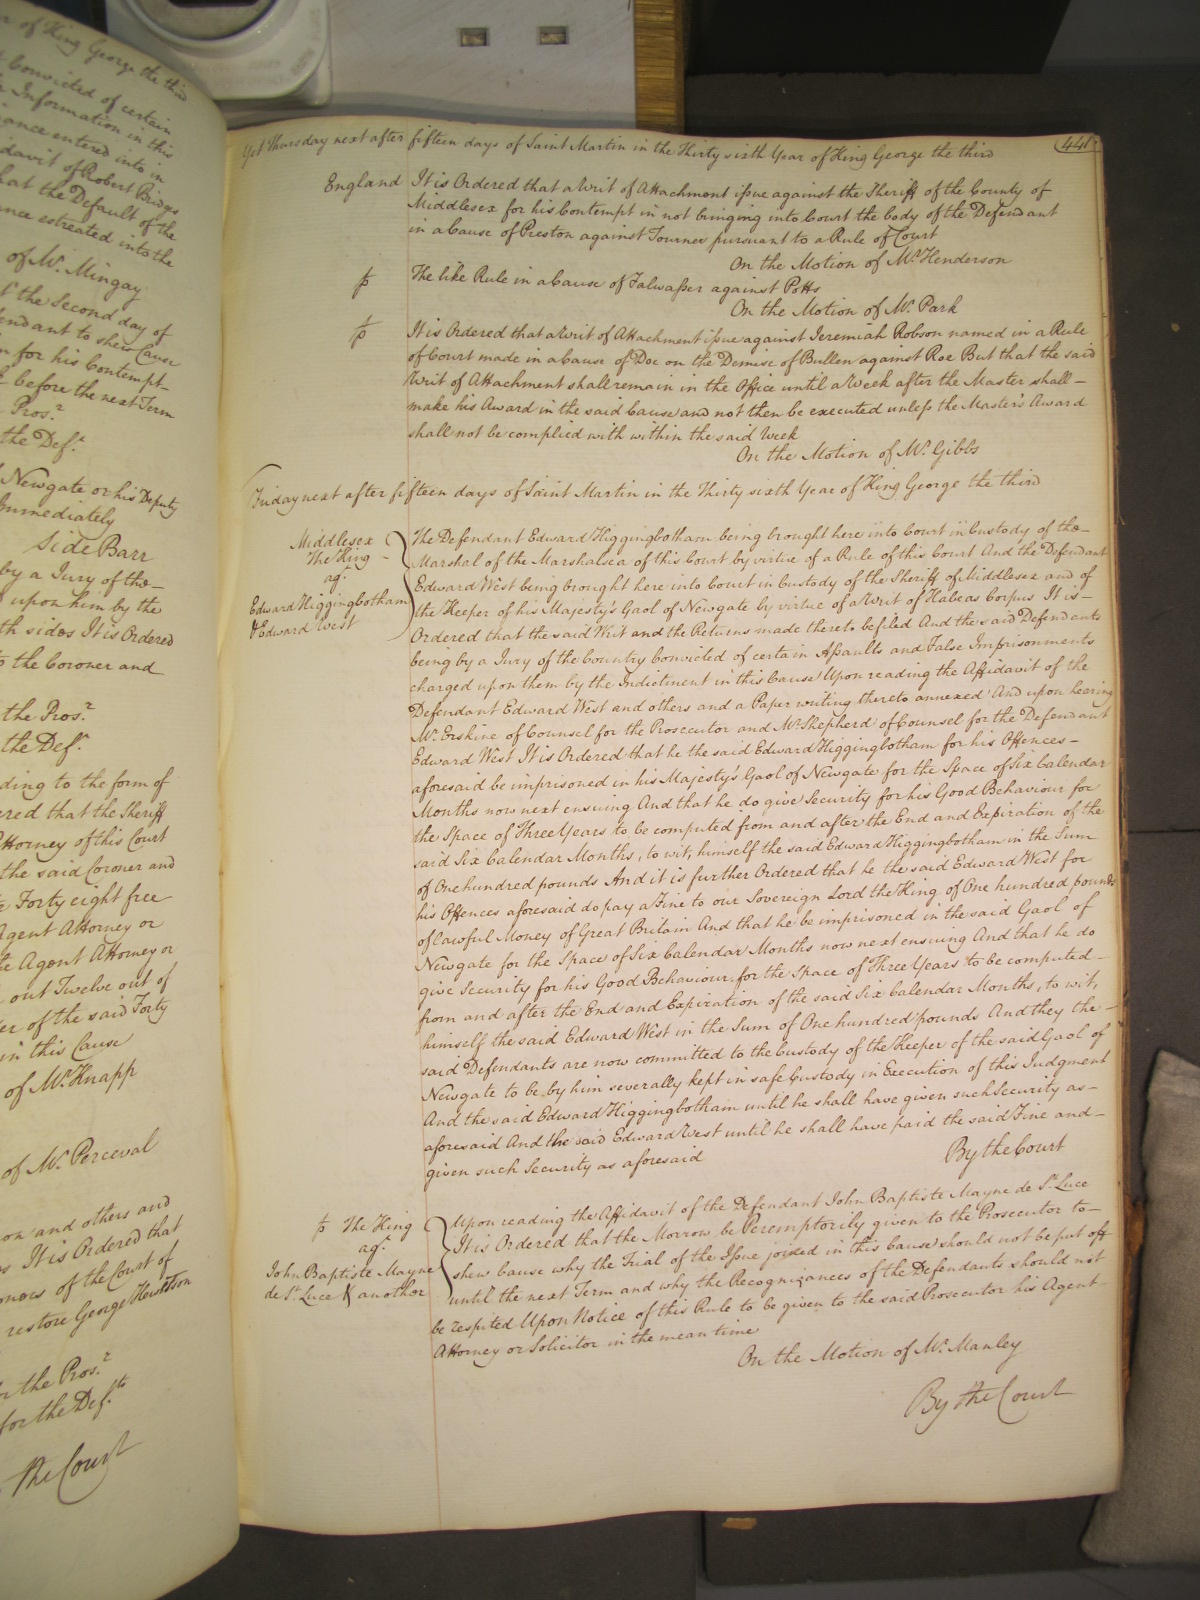 of King George the third
Convicted of certain
Information in this
ance entered into in
davit of Robert Bridgs
hat the Default of the
ance estreated into the
of Mr. Mingay
the Second day of
endant to shew Cause
for his Contempt
before the next Term
Pros.r
the Def.t
Newgate or his Deputy
Immediately
Side Barr
by a Jury of the
upon him by the
th sides It is Ordered
to the Coroner and
the Pros.r
the Def.t
ding to the form of
ered that the Sheriff
Attorney of this Court
the said Coroner and
Forty eight free
Agent Attorney or
te Agent Attorney or
out Twelve out of
er of the said Forty
in this Cause
of Mr. Knapp
of Mr. Perceval
on and others and
It is Ordered that
of the Court of
restore George Hewitson
the Pros.r
for the Def.ts
the Court
441
Yet Thursday next after fifteen days of Saint Martin in the Thirty sixth Year of King George the third
England It is Ordered that a Writ of Attachment issue against the Sheriff of the County of
Middlesex for his Contempt in not bringing into Court the body of the Defendant
in a Cause of Preston against Tourner pursuant to a Rule of Court
On the Motion of Mr. Henderson
The like Rule in a Cause of Falwasser against Potts
On the Motion of Mr. Park
It is Ordered that a Writ of Attachment issue against Jeremiah Robson named in a Rule
of Court made in a Cause of Doe on the Demise of Bullen against Roe But that the said
Writ of Attachment shall remain in the Office until a Week after the Master shall
make his Award in the said Cause and not then be executed unless the Master's Award
shall not be complied with within the said Week
On the Motion of Mr. Gibbs
Friday next after fifteen days of Saint Martin in the Thirty sixth Year of King George the third
Middlesex
The King
ag.t
Edward Higginbotham
& Edward West
The Defendant Edward Higginbotham being brought here into Court in Custody of the
Marshal of the Marshalsea of this Court by virtue of a Rule of this Court And the Defendant
Edward West being brought here into Court in Custody of the Sheriff of Middlesex and of
the Keeper of his Majesty's Gaol of Newgate by virtue of a Writ of Habeas Corpus It is
Ordered that the said Writ and the Returns made thereto be filed And the said Defendants
being by a Jury of the Country Convicted of certain Assaults and False Imprisonments
charged upon them by the Indictment in this Cause Upon reading the Affidavit of the
Defendant Edward West and others and a Paper writing thereto annexed And upon hearing
Mr. Erskine of Counsel for the Prosecutor and Mr. Shepherd of Counsel for the Defendant
Edward West It is Ordered that he the said Edward Higginbotham for his Offences
aforesaid be imprisoned in his Majesty's Gaol of Newgate for the Space of Six Calendar
Months now next ensuing And that he do give Security for his Good Behaviour for
the Space of Three Years to be computed from and after the End and Expiration of the
said Six Calendar Months, to wit, himself the said Edward Higginbotham in the Sum
of One hundred pounds And it is further Ordered that he the said Edward West for
his Offences aforesaid do pay a Fine to our Sovereign Lord the King of One hundred pounds
of lawful Money of Great Britain And that he be imprisoned in the said Gaol of
Newgate for the Space of Six Calendar Months now next ensuing And that he do
give Security for his Good Behaviour for the Space of Three Years to be computed
from and after the End and Expiration of the said Six Calendar Months, to wit,
himself the said Edward West in the Sum of One hundred pounds And they the
said Defendants are now committed to the Custody of the Keeper of the said Gaol of
Newgate to be by him severally kept in safe Custody in Execution of this Judgment
And the said Edward Higginbotham until he shall have given such Security as
aforesaid And the said Edward West until he shall have paid the said Fine and
given such Security as aforesaid
By the Court
The King
ag.t
John Baptiste Mayne
de St. Luce & another
Upon reading the Affidavit of the Defendant John Baptiste Mayne de St. Luce
It is Ordered that the Morrow be Peremptorily given to the Prosecutor to
shew Cause why the Trial of the Issue joined in this Cause should not be put off
until the next Term and why the Recognizances of the Defendants should not
be respited Upon Notice of this Rule to be given to the said Prosecutor his Agent
Attorney or Solicitor in the mean time
On the Motion of Mr. Manley
By the Court